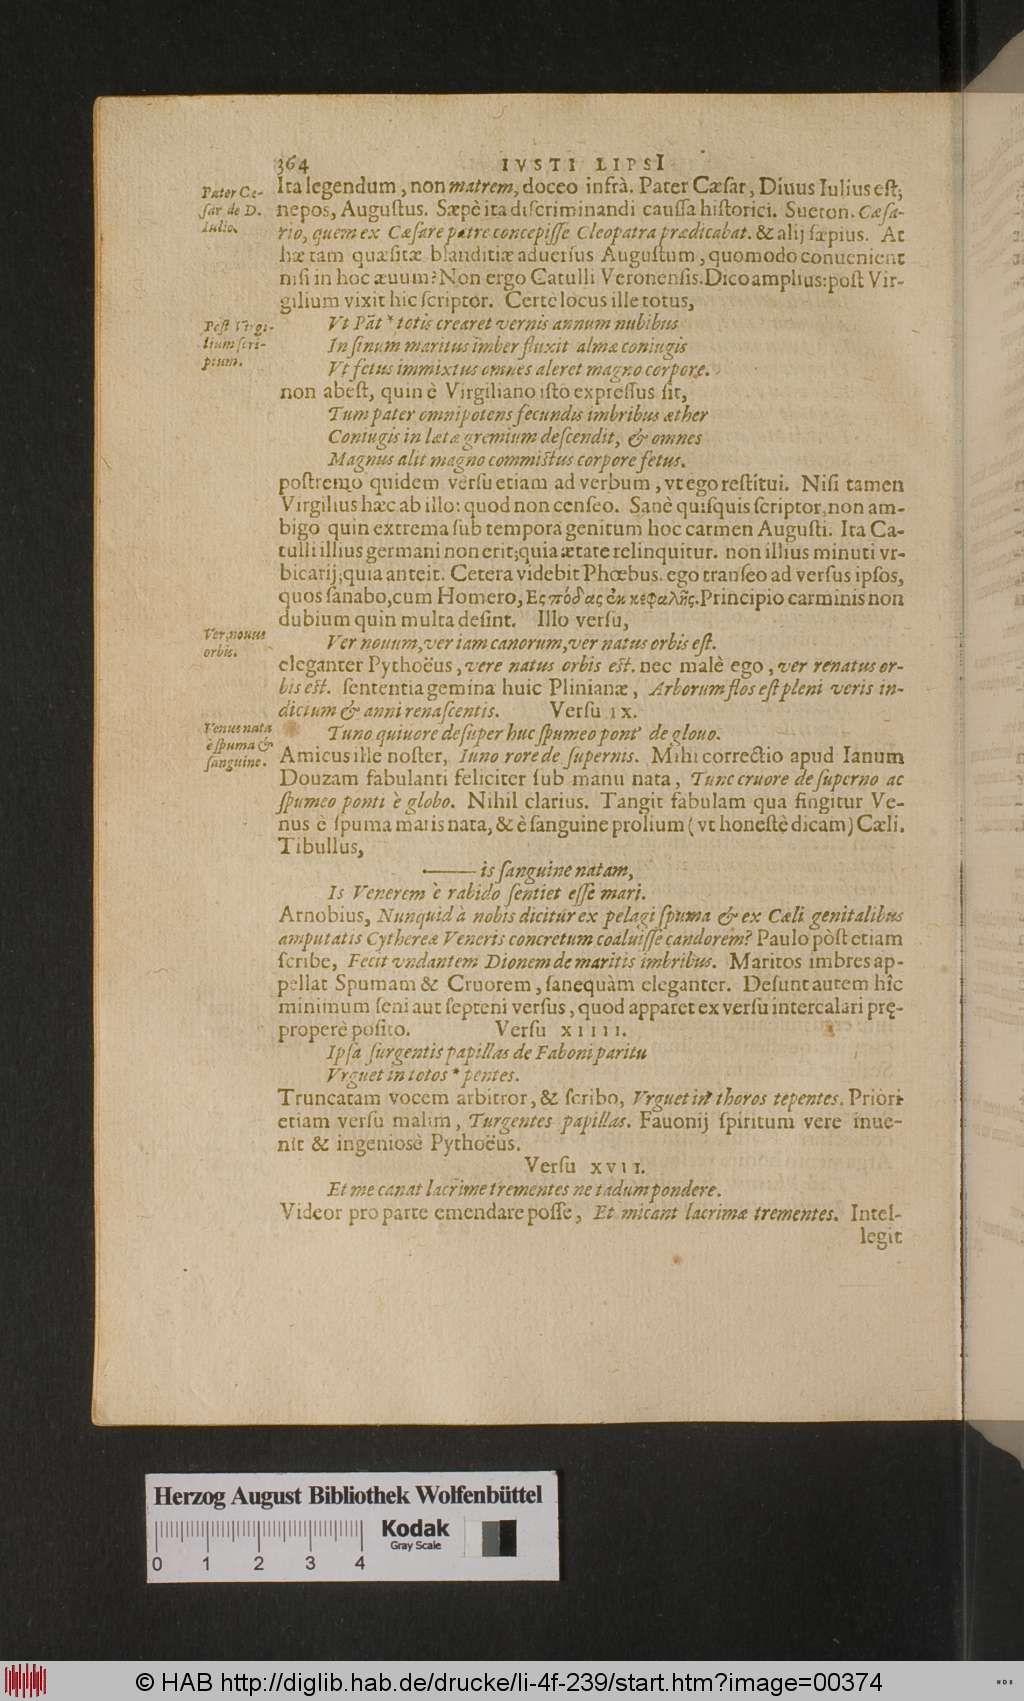 364 IVSTI LIPSI
Pater Cæ-
sar de D.
Iulio.
Ita legendum, non matrem, doceo infrà. Pater Cæsar, Diuus Iulius est;
nepos, Augustus. Sæpè ita discriminandi caussa historici. Sueton. Cæsa-
rio, quem ex Cæsare patre concepisse Cleopatra prædicabat. & alij sæpius. At
hæ tam quæsitæ blanditiæ aduersus Augustum, quomodo conuenient
nisi in hoc æuum? Non ergo Catulli Veronensis. Dico amplius: post Vir-
gilium vixit hic scriptor. Certè locus ille totus,
Post Virgi-
lium scri-
ptum.
Vt Pāt * totis crearet vernis annum nubibus
In sinum maritus imber fluxit almæ coniugis
Vt fetus immixtus omnes aleret magno corpore.
non abest, quin è Virgiliano isto expressus sit,
Tum pater omnipotens fecundis imbribus æther
Coniugis in lætæ gremium descendit, & omnes
Magnus alit magno commistus corpore fetus.
postremo quidem versu etiam ad verbum, vt ego restitui. Nisi tamen
Virgilius hæc ab illo: quod non censeo. Sanè quisquis scriptor, non am-
bigo quin extrema sub tempora genitum hoc carmen Augusti. Ita Ca-
tulli illius germani non erit; quia ætate relinquitur. non illius minuti vr-
bicarij; quia anteit. Cetera videbit Phœbus. ego transeo ad versus ipsos,
quos sanabo, cum Homero, Ες πόδας ἐκ κεφαλῆς. Principio carminis non
dubium quin multa desint. Illo versu,
Ver, nouus
orbis.
Ver nouum, ver iam canorum, ver natus orbis est.
eleganter Pythoëus, vere natus orbis est. nec malè ego, ver renatus or-
bis est. sententia gemina huic Plinianæ, Arborum flos est pleni veris in-
dicium & anni renascentis. Versu IX.
Venus nata
è spuma &
sanguine.
Tuno quiuore desuper huc spumeo pont' de glouo.
Amicus ille noster, Iuno rore de supernis. Mihi correctio apud Ianum
Douzam fabulanti feliciter sub manu nata, Tunc cruore de superno ac
spumeo ponti è globo. Nihil clarius. Tangit fabulam qua fingitur Ve-
nus è spuma maris nata, & è sanguine prolium (vt honestè dicam) Cæli.
Tibullus,
—— is sanguine natam,
Is Venerem è rabido sentiet esse mari.
Arnobius, Nunquid à nobis dicitur ex pelagi spuma & ex Cæli genitalibus
amputatis Cythereæ Veneris concretum coaluisse candorem? Paulo pòst etiam
scribe, Fecit vndantem Dionem de maritis imbribus. Maritos imbres ap-
pellat Spumam & Cruorem, sanequàm eleganter. Desunt autem hîc
minimum seni aut septeni versus, quod apparet ex versu intercalari prę-
properè posito. Versu XIIII.
Ipsa surgentis papillas de Faboni paritu
Vrguet in totos * pentes.
Truncatam vocem arbitror, & scribo, Vrguet in thoros tepentes. Priori
etiam versu malim, Turgentes papillas. Fauonij spiritum vere inue-
nit & ingeniosè Pythoëus.
Versu XVII.
Et me canat lacrime trementes ne tadum pondere.
Videor pro parte emendare posse, Et micant lacrimæ trementes. Intel-
legit
Herzog August Bibliothek Wolfenbüttel
Kodak
Gray Scale
0 1 2 3 4
© HAB http://diglib.hab.de/drucke/li-4f-239/start.htm?image=00374